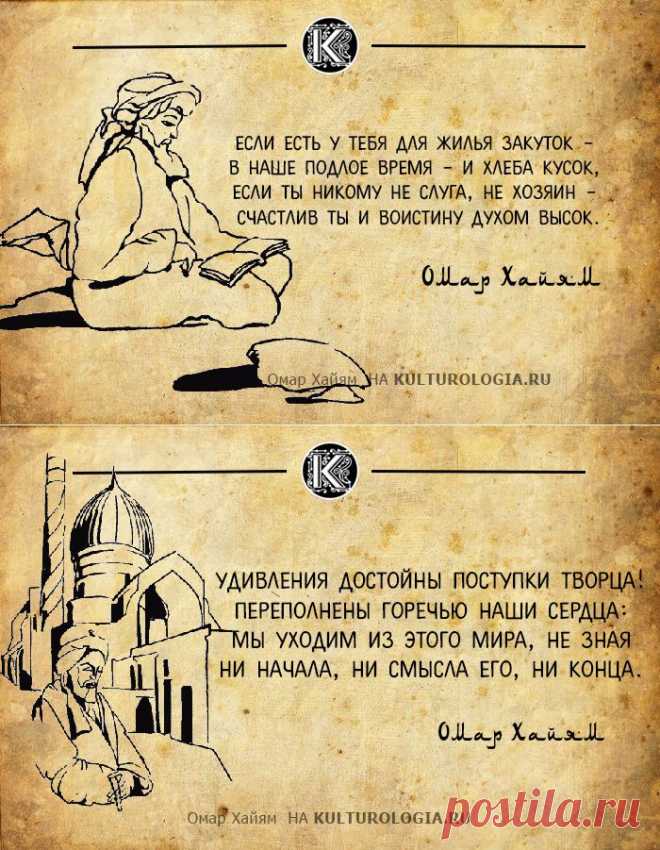 K
ЕСЛИ ЕСТЬ У ТЕБЯ ДЛЯ ЖИЛЬЯ ЗАКУТОК –
В НАШЕ ПОДЛОЕ ВРЕМЯ – И ХЛЕБА КУСОК,
ЕСЛИ ТЫ НИКОМУ НЕ СЛУГА, НЕ ХОЗЯИН –
СЧАСТЛИВ ТЫ И ВОИСТИНУ ДУХОМ ВЫСОК.
Омар Хайям
Омар Хайям НА KULTUROLOGIA.RU
K
УДИВЛЕНИЯ ДОСТОЙНЫ ПОСТУПКИ ТВОРЦА!
ПЕРЕПОЛНЕНЫ ГОРЕЧЬЮ НАШИ СЕРДЦА:
МЫ УХОДИМ ИЗ ЭТОГО МИРА, НЕ ЗНАЯ
НИ НАЧАЛА, НИ СМЫСЛА ЕГО, НИ КОНЦА.
Омар Хайям
Омар Хайям НА KULTUROLOGIA.RU
postila.ru